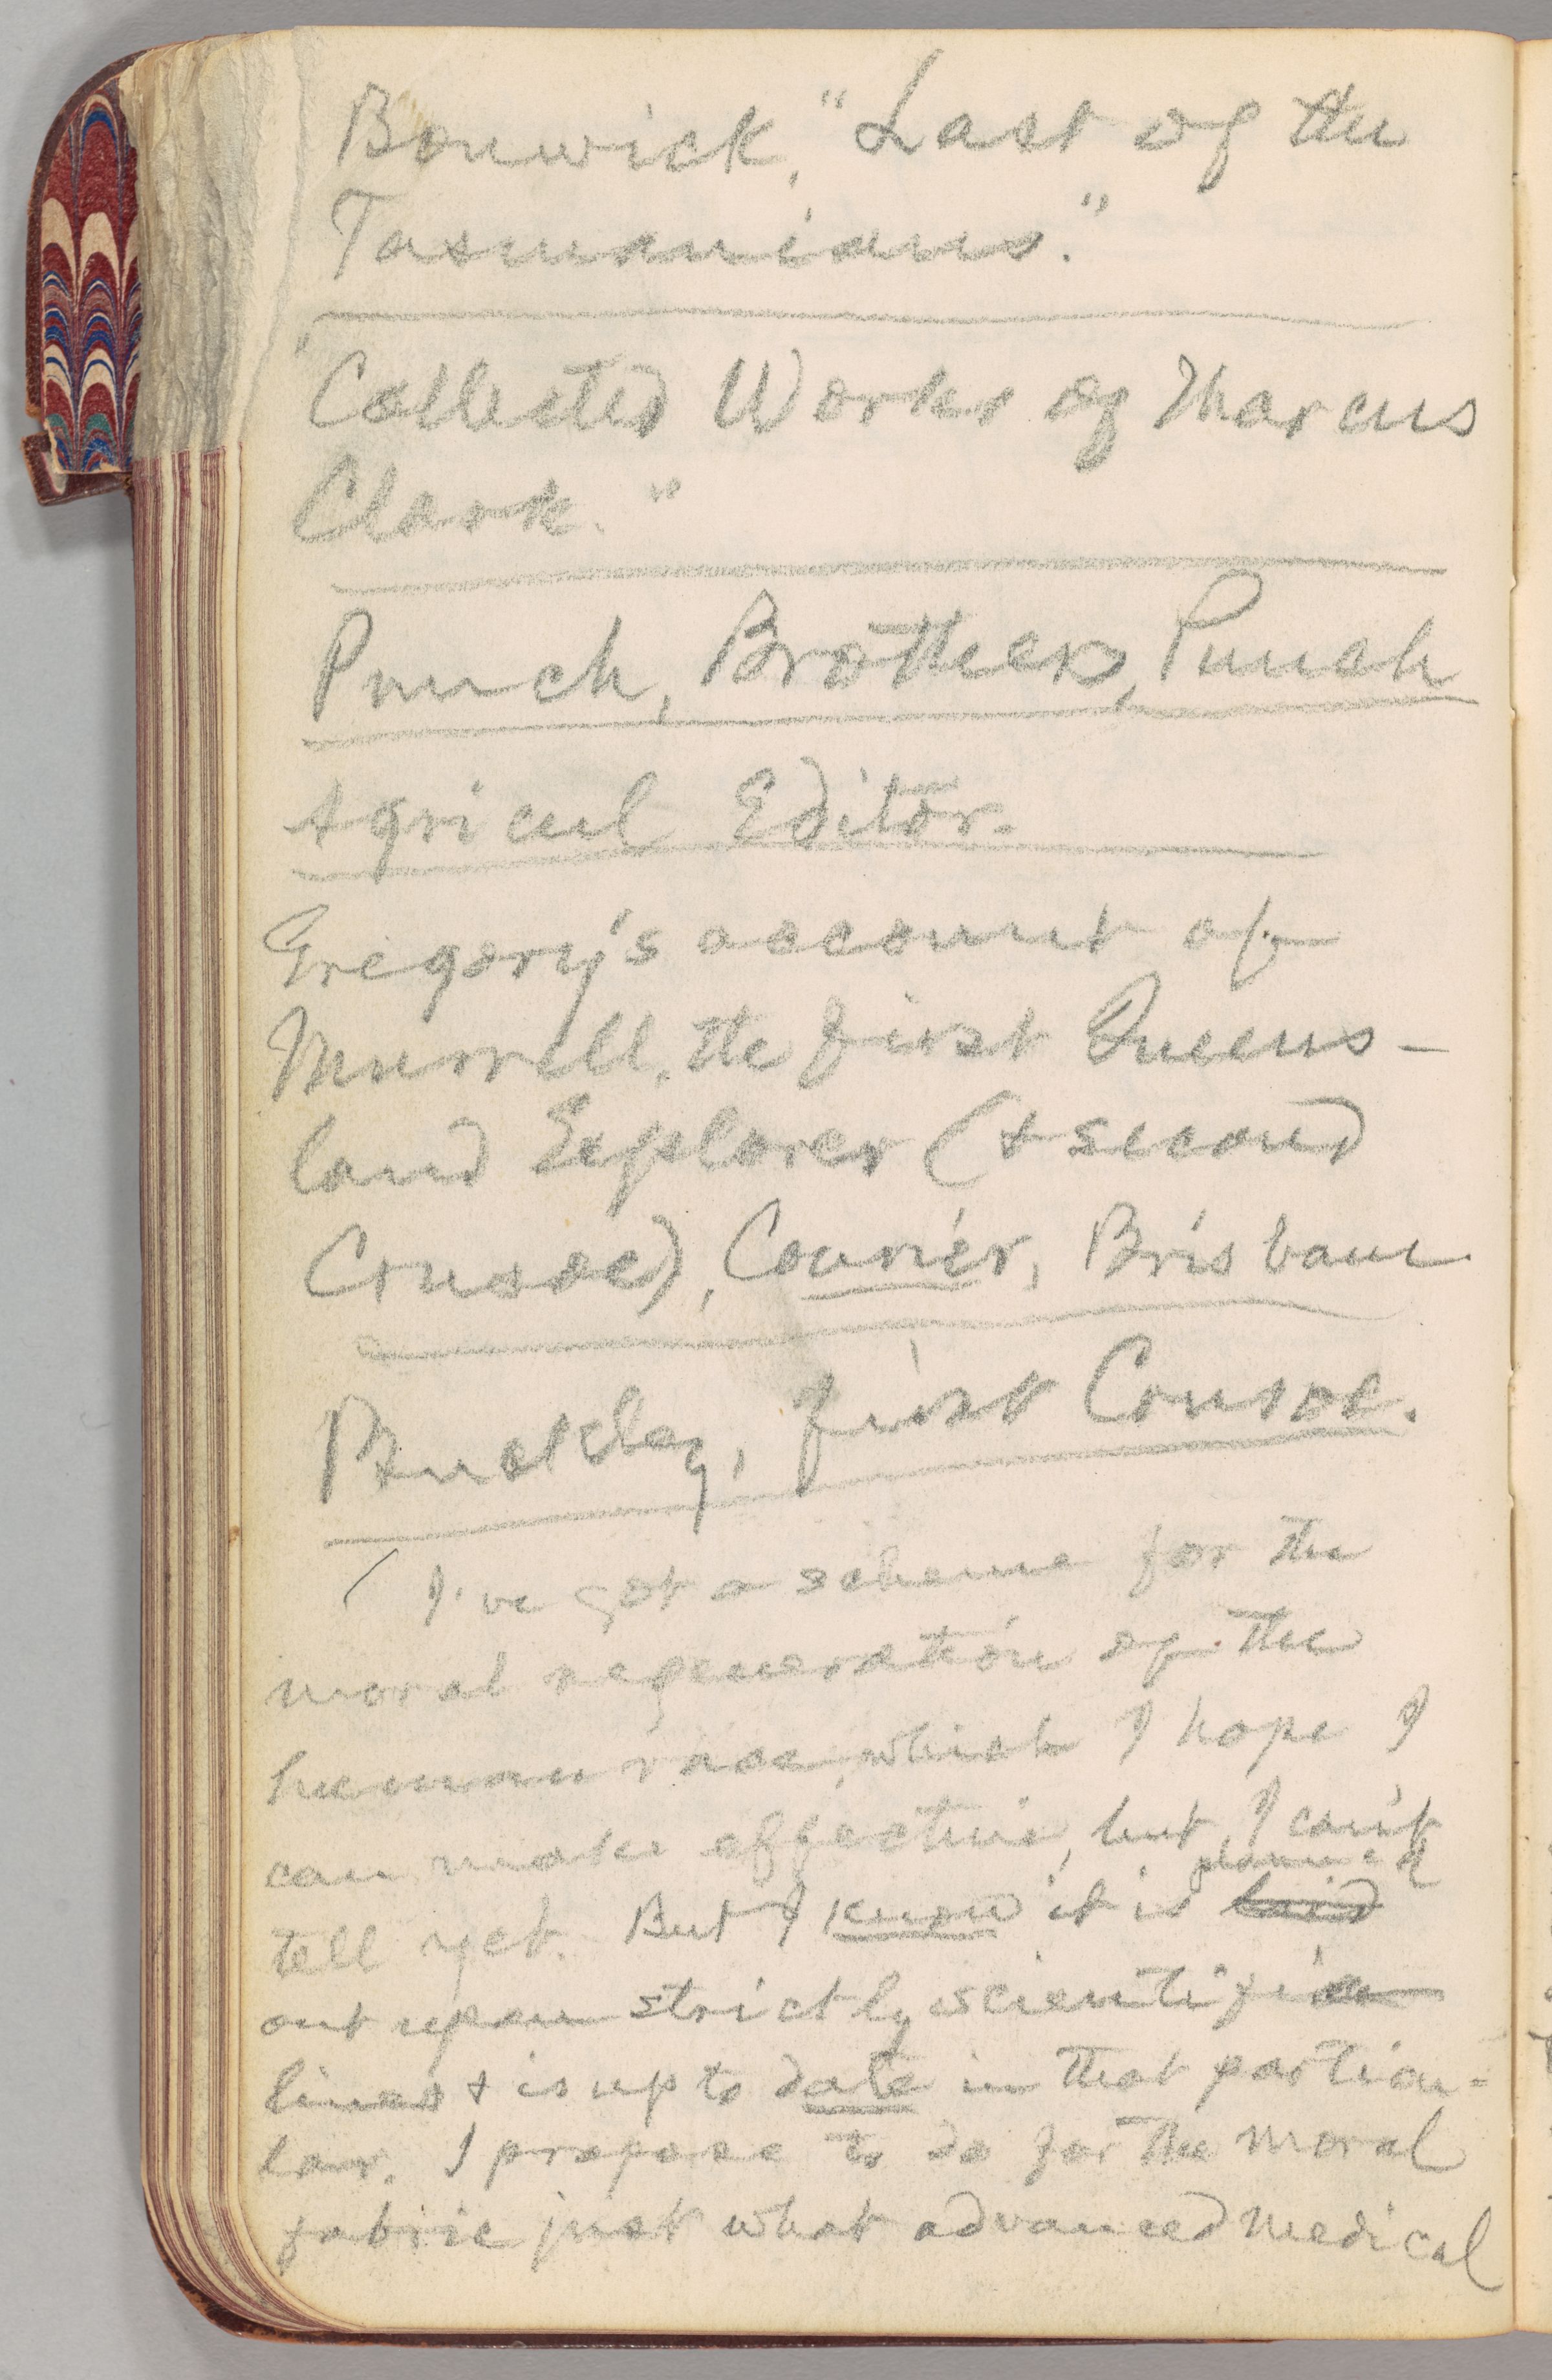 Bonwick, "Last of the
Tasmanians."
"Collected Works of Marcus
Clark."
Punch, Brothers, Punch
Agricul Editor.
Gregory's account of
Murrell, the first Queens-
land Explorer (& second
Crusoe), Courier, Brisbane
Buckley, first Crusoe.
I've got a scheme for the
moral regeneration of the
human race, which I hope I
can make effective, but I can't
planned
tell yet. But I know it is laid
out upon strictly scientific
lines & is up to date in that particu=
lar. I propose to do for the moral
fabric just what advanced medical